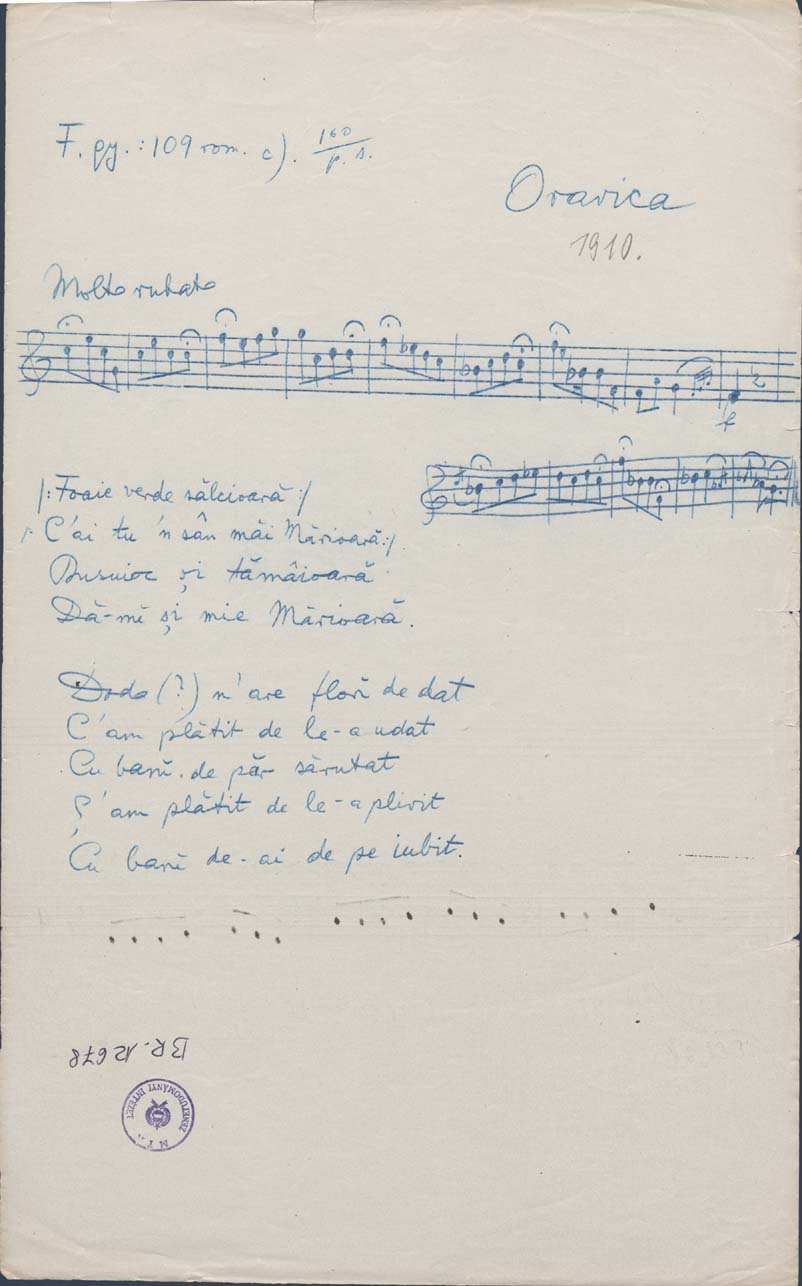 F. gy.: 109 rom. c). 160/p. s.
Oravica
1910.
Molto rubato
/: Foaie verde sălcioară :/
/: C'ai tu 'n sân măi Mărioară :/
Busuioc și tămâioară
Dă-mĭ și mie Mărioară.
Doda (?) n'are florĭ de dat
C'am plătit de le-a udat
Cu banĭ de păr sărutat
Ș'am plătit de le-a plivit
Cu banĭ de-ai de pe iubit.
BR. 12678
M T A ZENETUDOMÁNYI INTÉZET